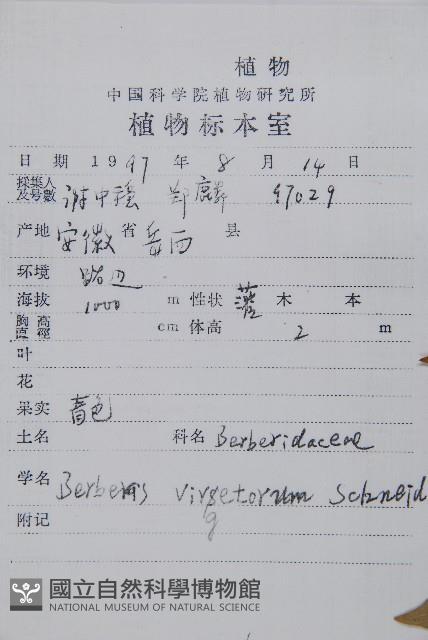 植物
中国科学院植物研究所
植物标本室
日 期 1997 年 8 月 14 日
採集人及号數 谢中稳 郑麟 97029
产地 安徽 省 岳西 县
环境 路边
海拔 1000 m 性状 灌 木 本
胸高直徑 cm 体高 2 m
叶
花
果实 青色
土名 科名 Berberidaceae
学名 Berberis virgetorum Schneid
附记
國立自然科學博物館
NATIONAL MUSEUM OF NATURAL SCIENCE